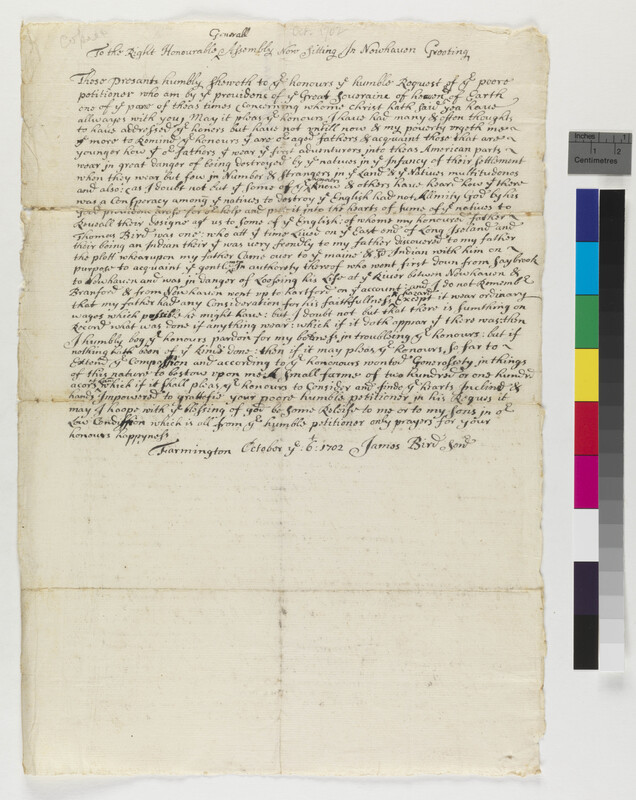 Oct. 1702
Generall
To the Right Honourable Assembly Now Sitting In Newhaven Greeting
These presents humbly sheweth to ye honours ye humble Request of ye poore
petitioner who am by ye providenc of ye Great Soveraine of heaven & Earth
one of ye pore of theas times concerning whome Christ hath said yea have
allwayes with you, May it pleas ye honours I have had many & often thoughts
to have addressed ye honers but have not untill now & my poverty
more to Remind ye honours yt are of aged fathers & acquaint those that are
younger how yt old fathers yt wear ye first adventurers into theas American parts
wear in great danger of being destroyed by ye natives in ye Infancy of their settlement
when they wear but few in Number & Strangers in ye Land & ye Natives multitudenos
and also as I doubt not but yt some of ye honours know & others have heard how yt there
was a Conspiracy among ye natives to destroy ye English had not Allmity God by his
providenc arose for old help and put it into the hearts of sume of ye natives to
Reveall their designe of us to some of ye English: of whome my honoured father
Thomas Bird was one: who att yt time Lived on ye East end of Long Iseland and
their being an Indian their yt was very frendly to my father discovered to my father
the plott whearupon my father Came over to ye maine & ye Indian with him on
purpose to acquaint ye gentlmn In authority thereof who went first doun from Saybrook
to Newhaven and was in danger of Loosing his Life at ye River betwen Newhaven &
Branford & from Newhaven went up to hartford on ye account and I do not Remember
that my father had any Consideration for his faithfullness Except it wear ordinary
wages which possible he might have: but I doubt not but that there is sumthing on
Record what was done if anything wear: which if it doth appear yt there was: then
I humbly beg ye honours pardon for my boldness in troubleing ye honours: but if
nothing hath been of yt kind done: then if it may pleas ye honours, so far to
Extend ye Compassion and according to ye honours wonted Generosity in things
of this nature to bestow upon me A Small farme of two hundred or one hundrd
acors which if it shall pleas ye honours to Consider and finde ye hearts Inclind &
hands Impowered to grattefie your poore humble petitioner in his Request it
may I hoope with ye blessing of god be some Releife to me or to my sons in
Low Condission which is all from ye humble petitioner only prayers for your
honours happyness
Farmington October ye: 6: 1702 James Bird
Inches 1 2
Centimetres